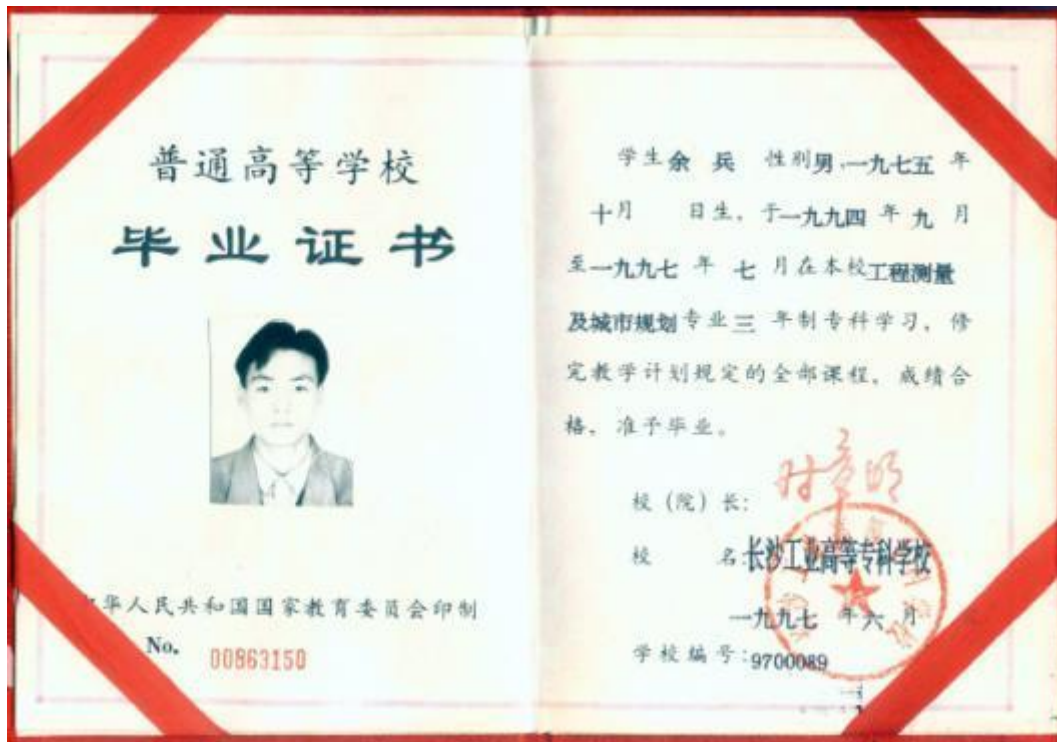 普通高等学校
毕业证书
中华人民共和国国家教育委员会印制
No. 00863150
学生余 兵 性别男,一九七五 年
十月 日生, 于一九九四 年 九 月
至一九九七 年 七 月在本校工程测量
及城市规划专业三 年制专科学习, 修
完教学计划规定的全部课程, 成绩合
格, 准予毕业。
校 (院) 长:
校 名:长沙工业高等专科学校
一九九七 年六 月
学校编号:9700089